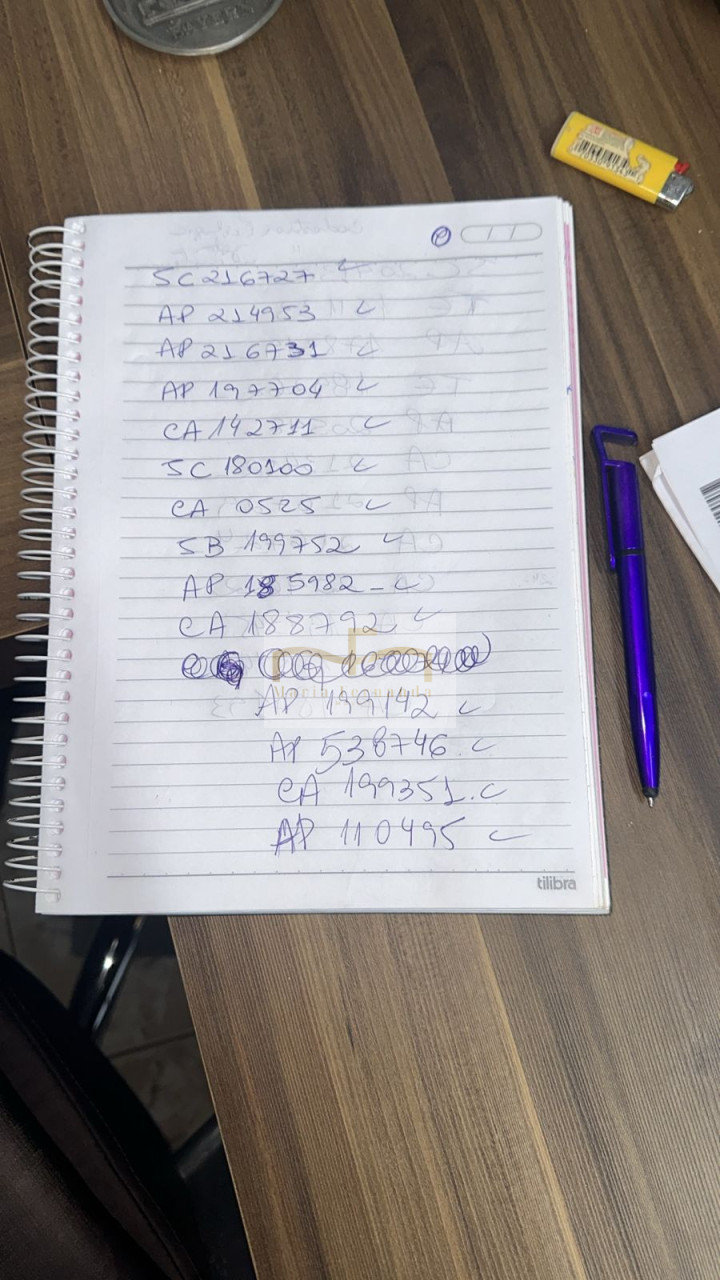 SC 216727
AP 214953
AP 216731
AP 197704
CA 142711
SC 180100
CA 0525
SB 199752
AP 185982 -
CA 188792
AP 199142
AP 538746.
CA 199351.
AP 110495
tilibra